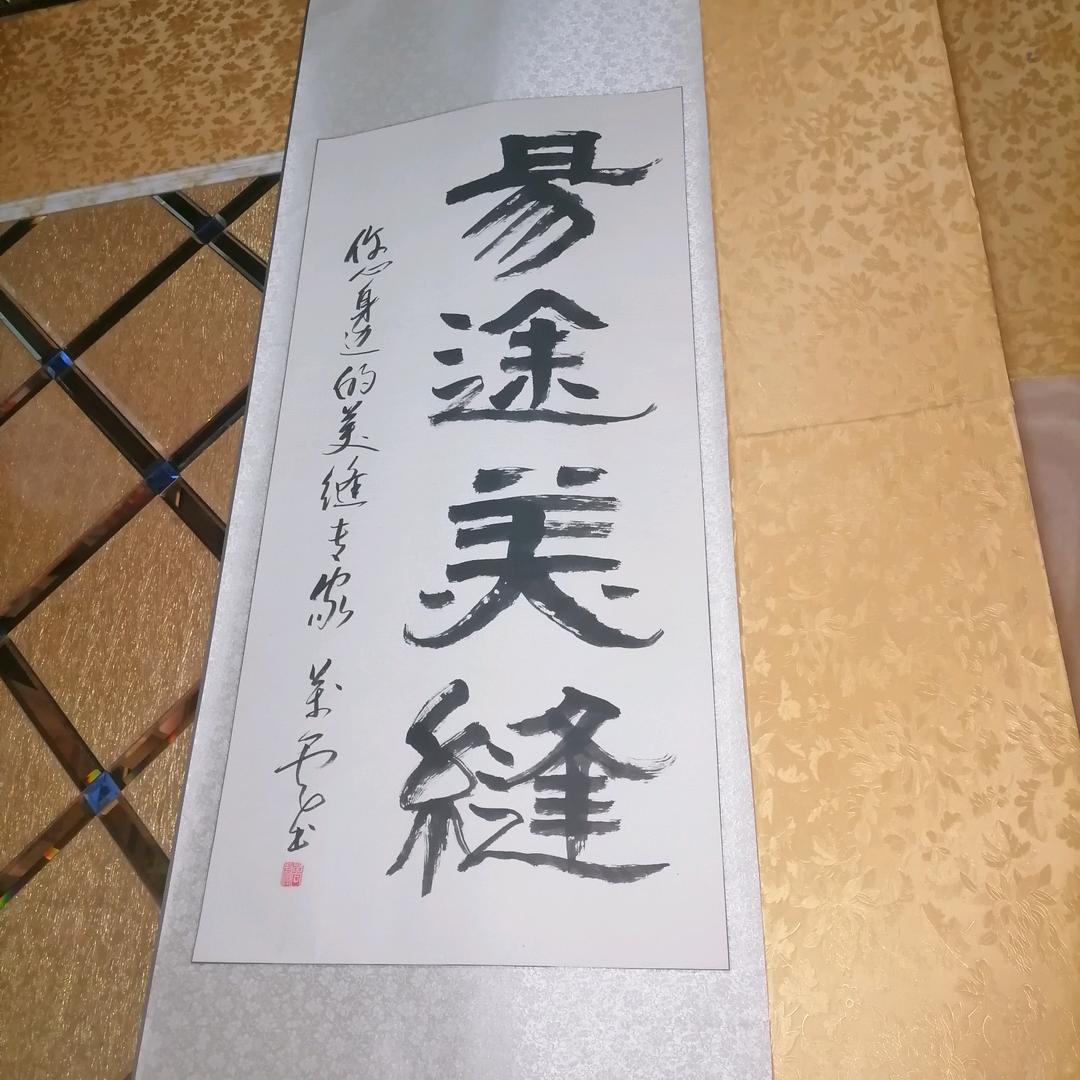 易途美縫
你心身边的美缝专家